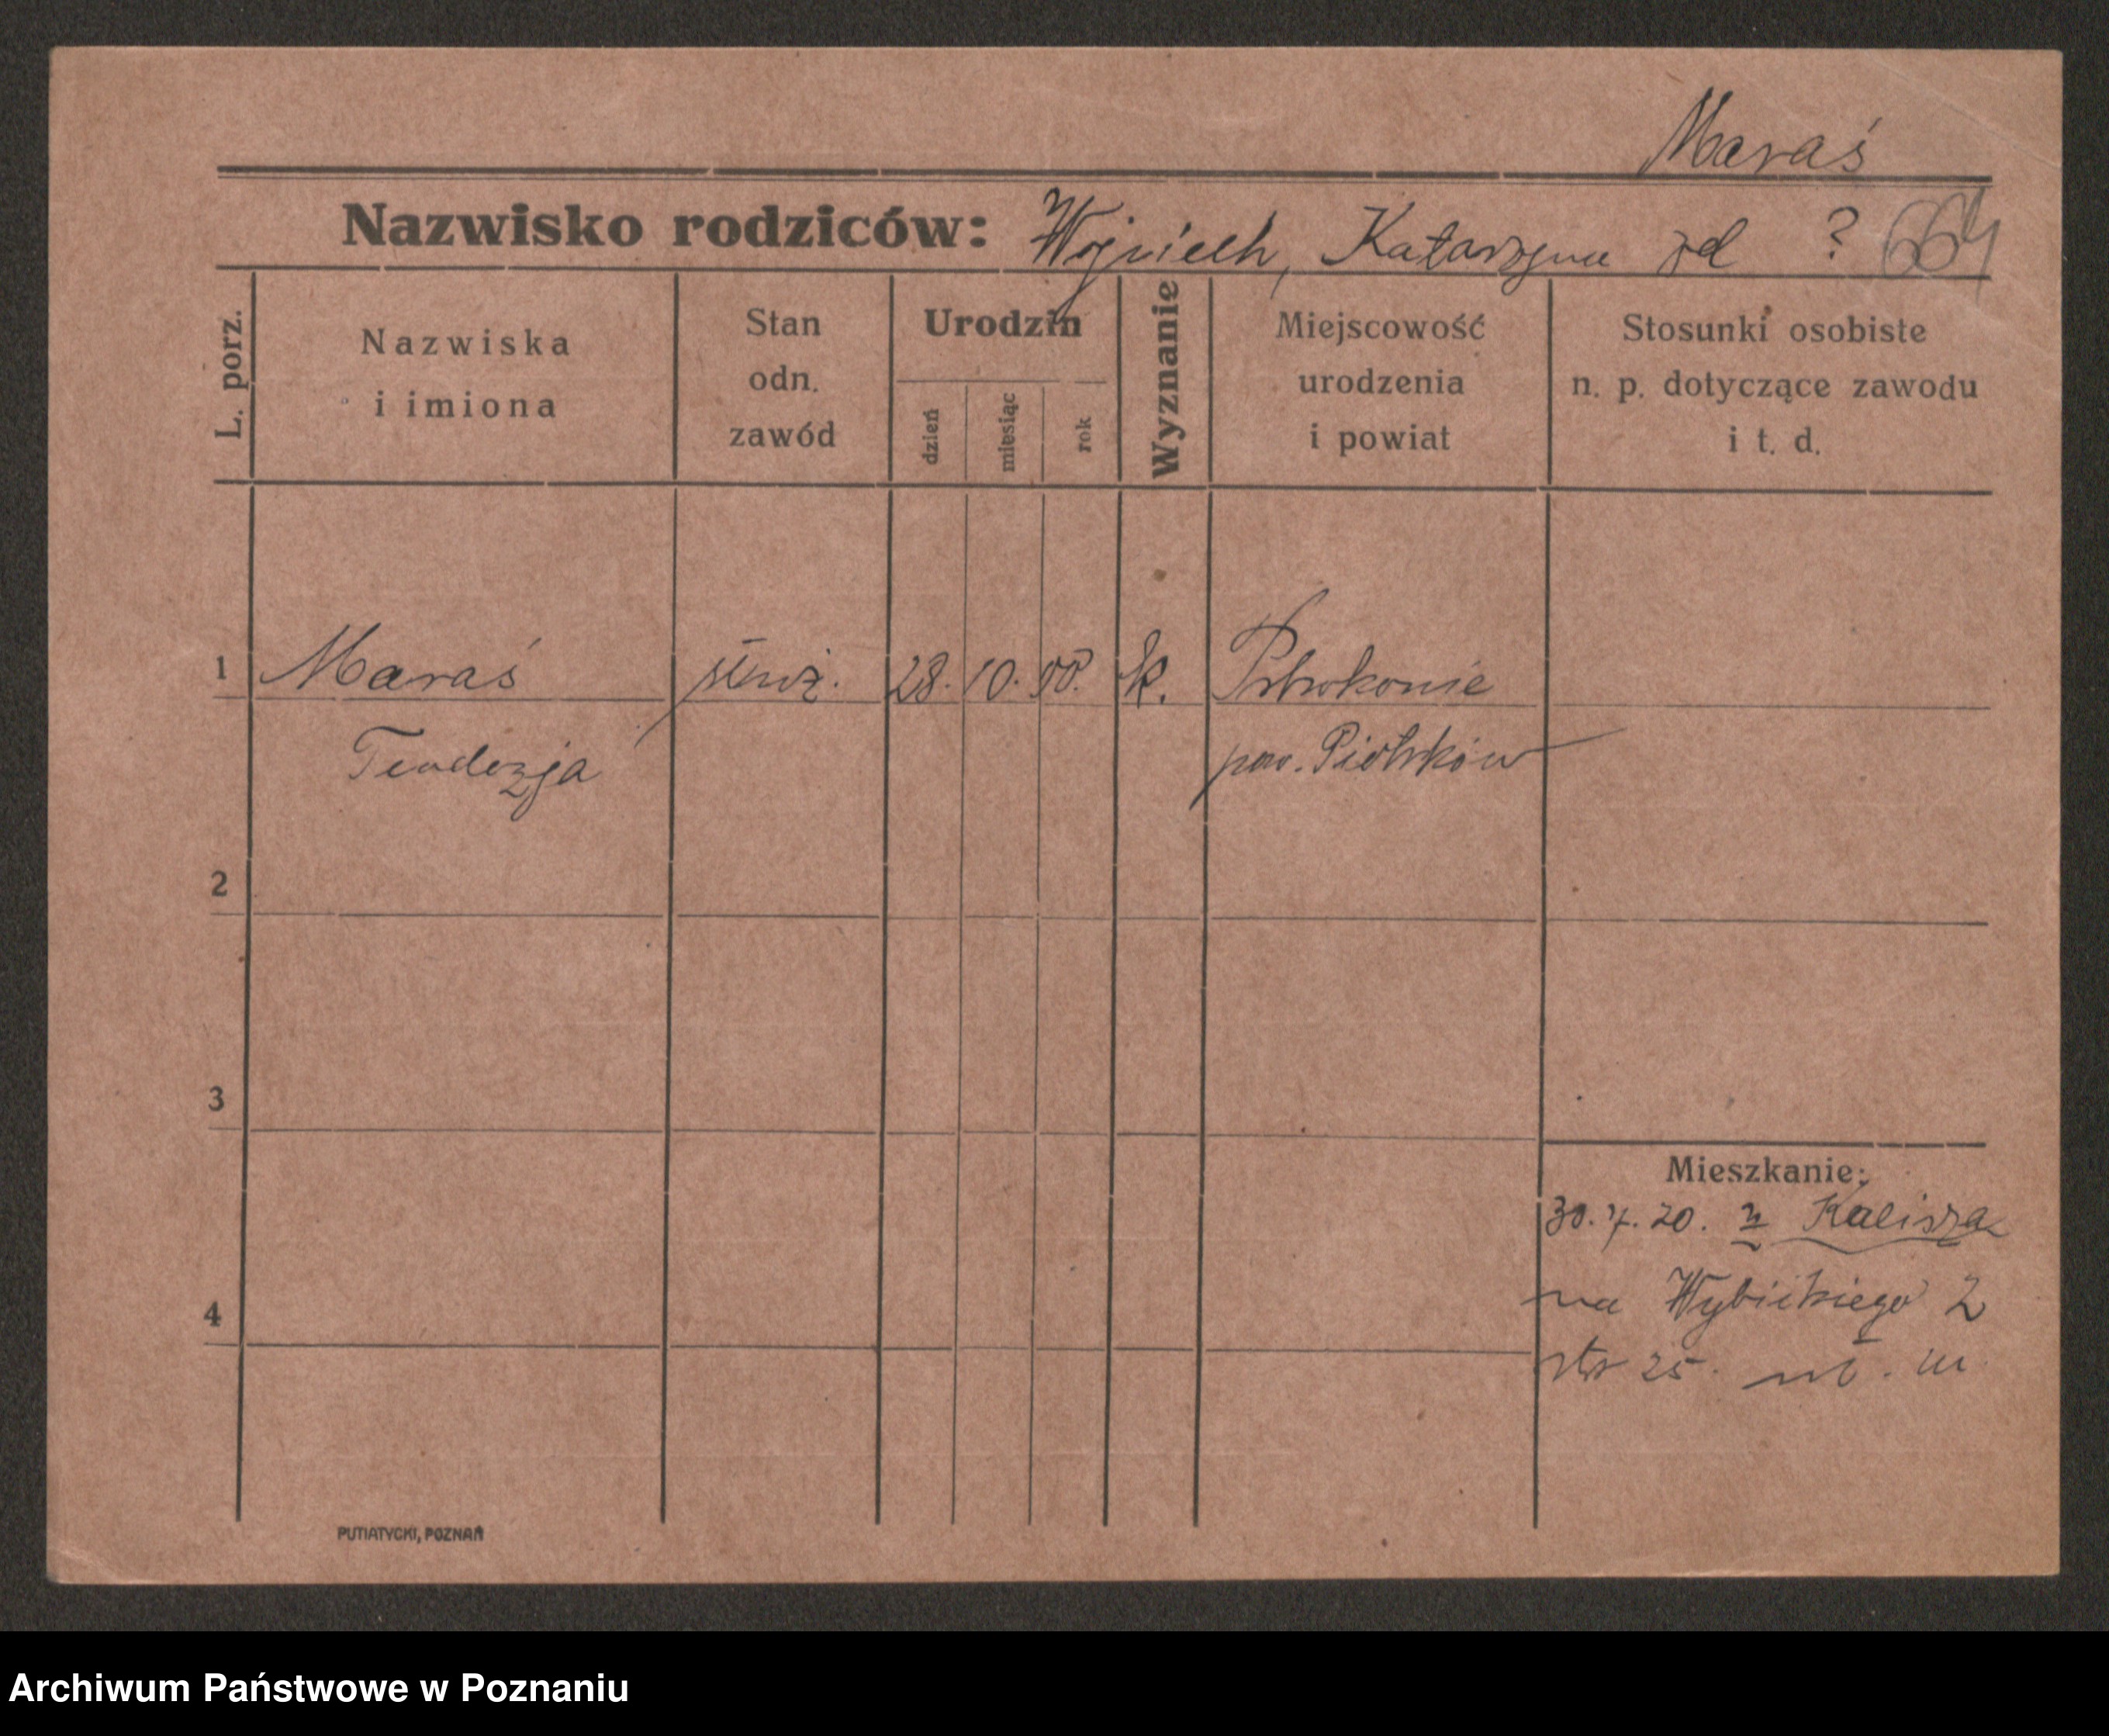 Maraś
Nazwisko rodziców: Wojciech, Katarzyna zd ? 664
L. porz.
Nazwiska
i imiona
Stan
odn.
zawód
Urodzin
dzień
miesiąc
rok
Wyznanie
Miejscowość
urodzenia
i powiat
Stosunki osobiste
n. p. dotyczące zawodu
i t. d.
1 Maraś służ. 28. 10. 00. k. Pstrokonie
Teodozja pow. Piotrków
2
3
Mieszkanie:
30. 7. 20. z Kalisza
4
na Wybickiego 2
ptr 25.
PUTIATYCKI, POZNAŃ
Archiwum Państwowe w Poznaniu